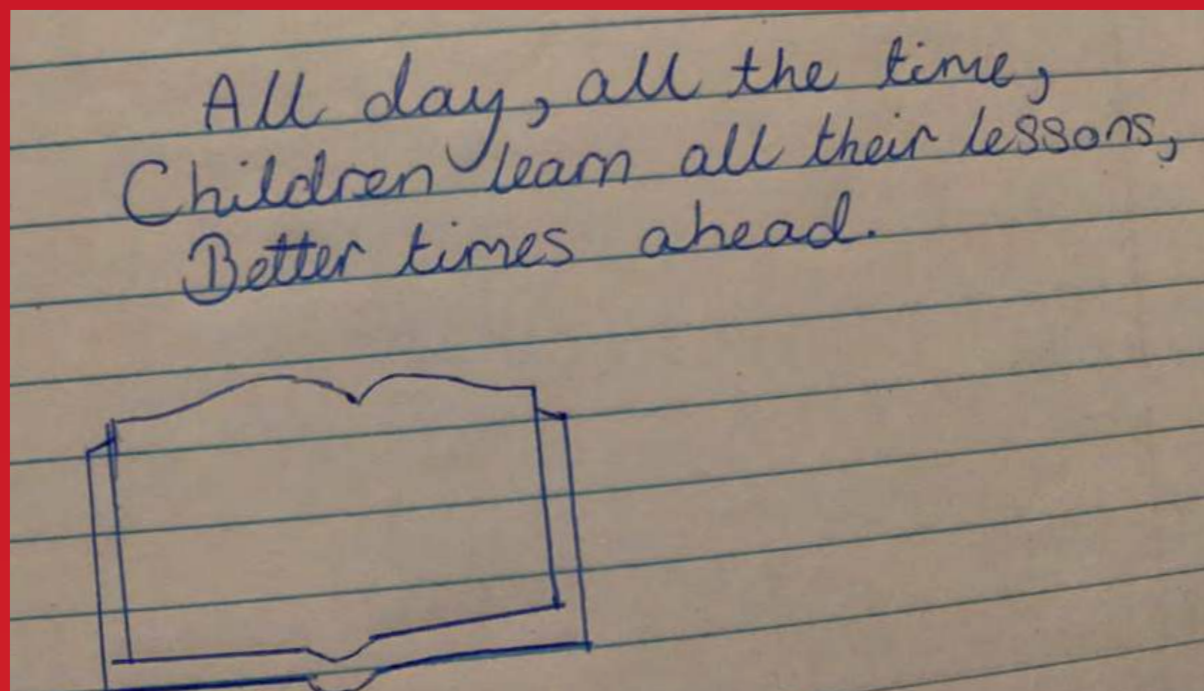 All day, all the time,
Children learn all their lessons,
Better times ahead.